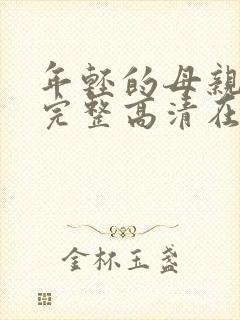 年轻的母亲
完整高清在
金杯玉盏